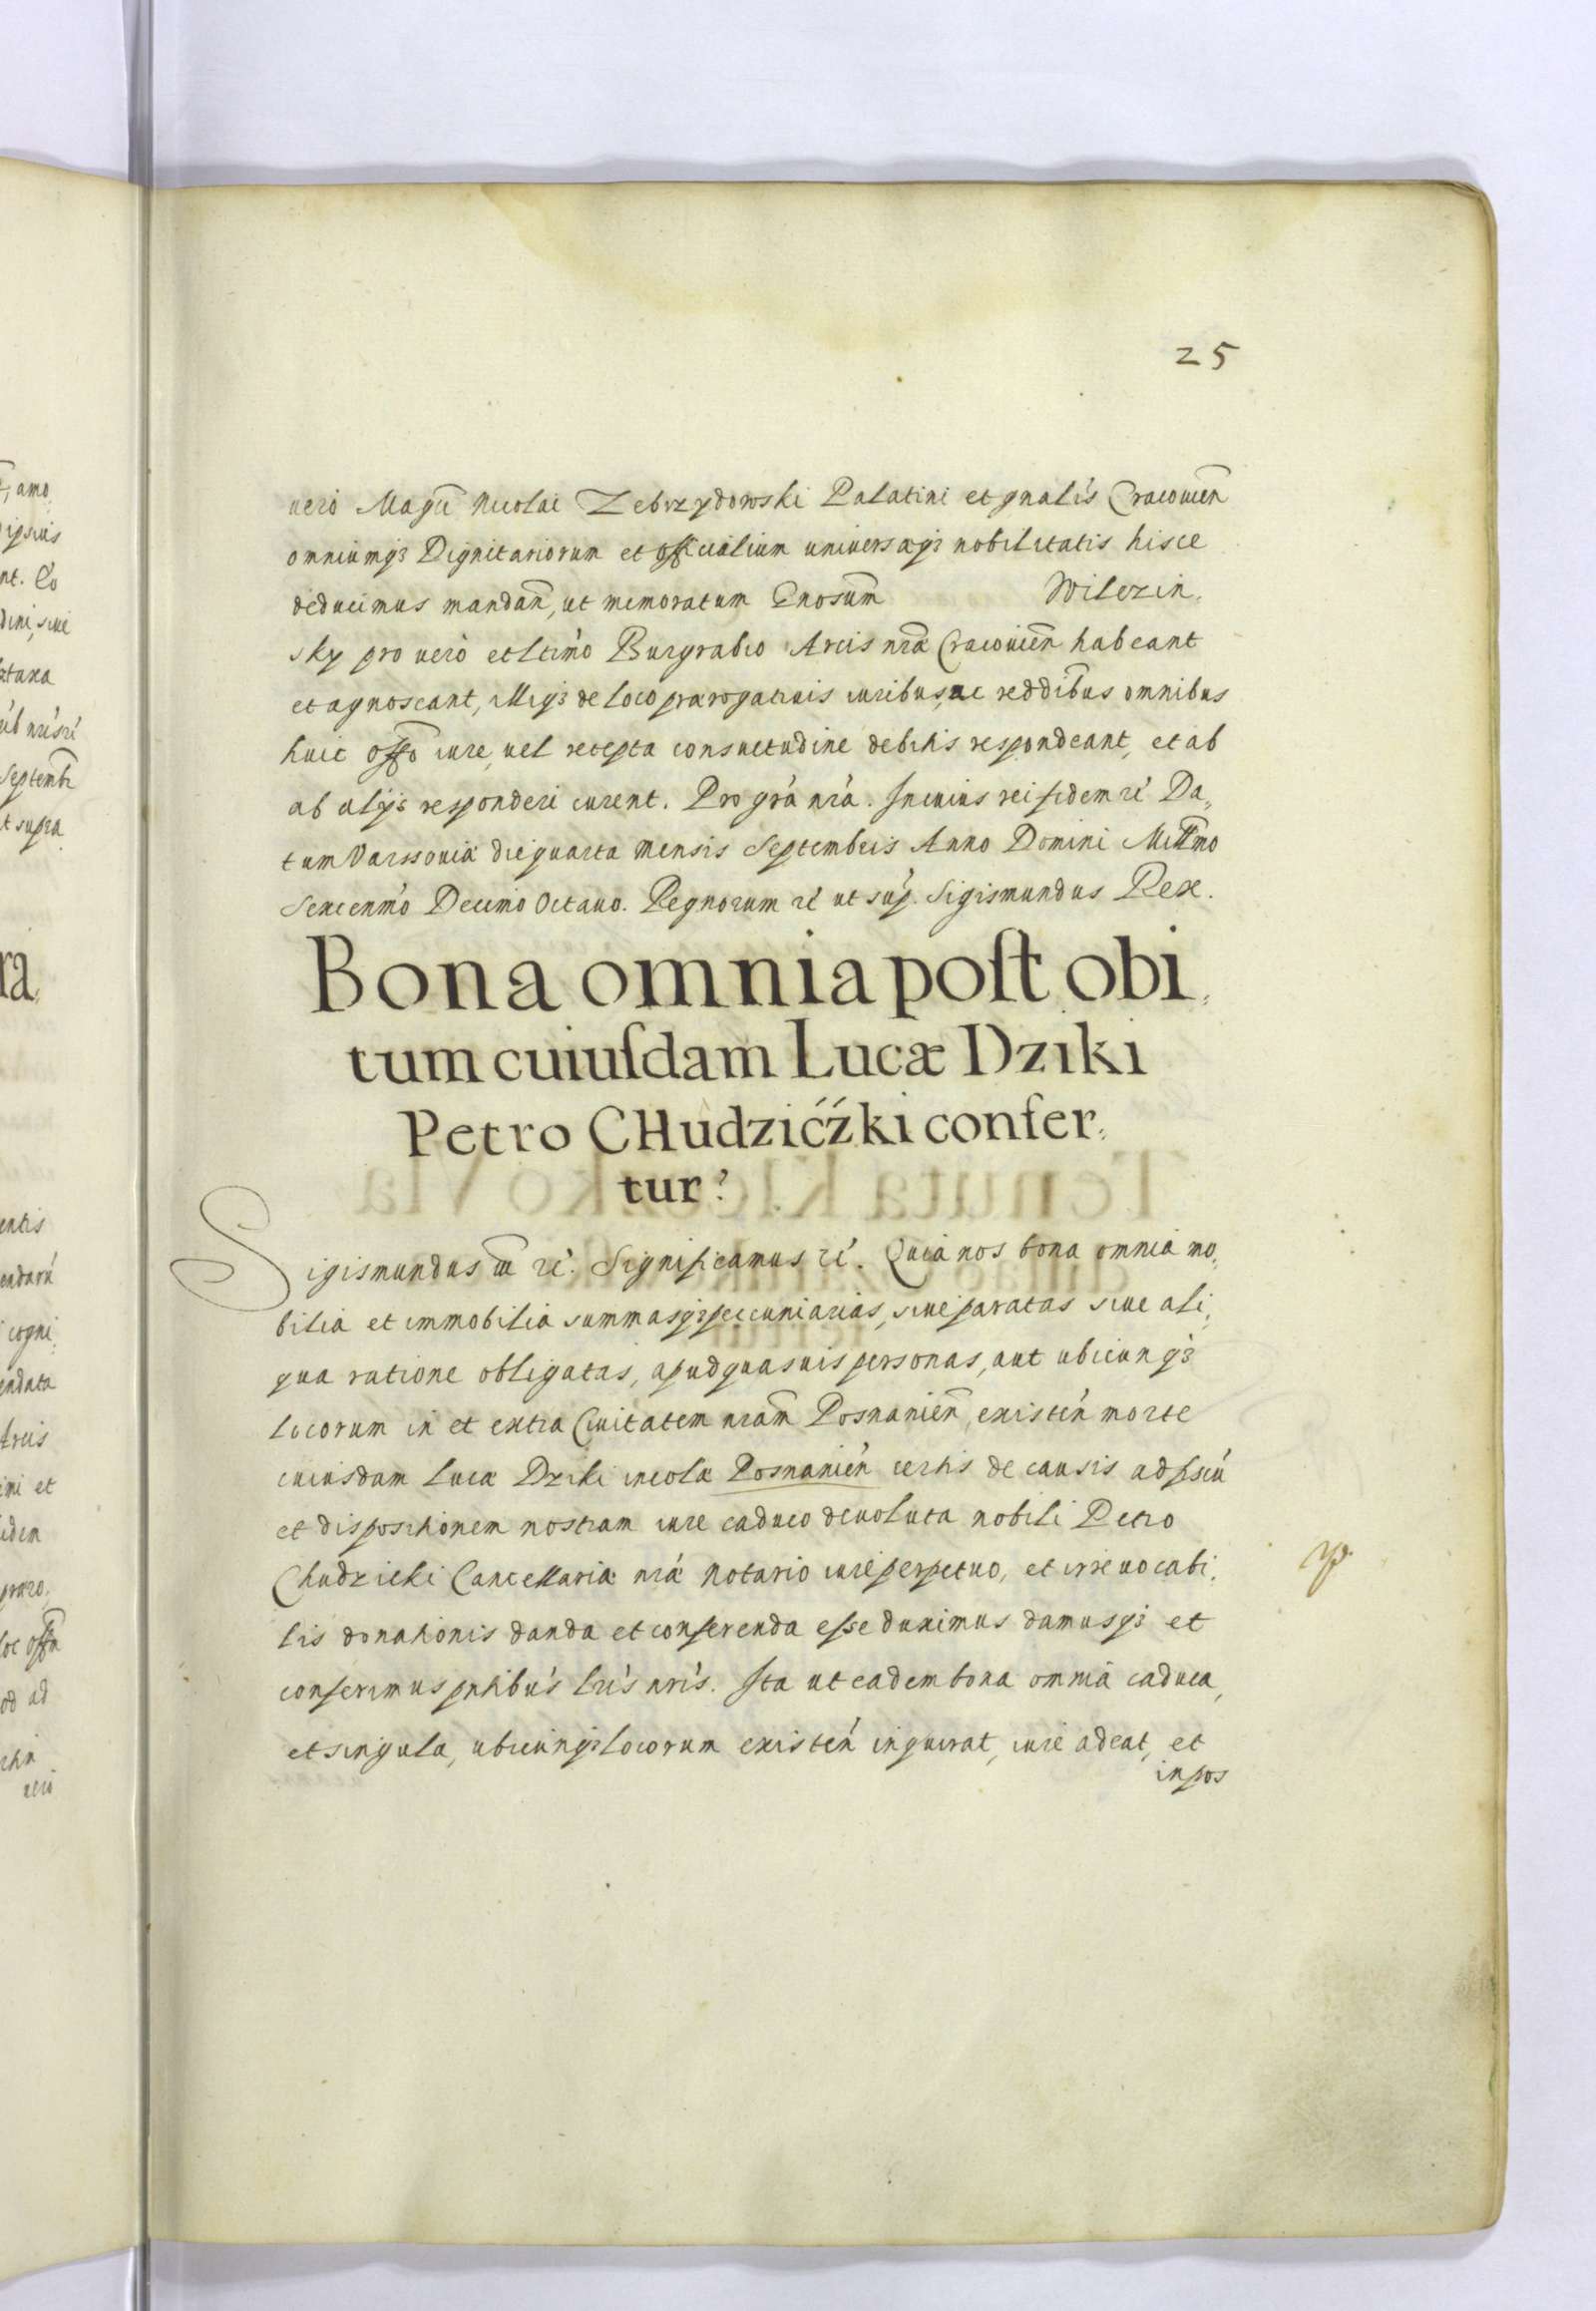 25
vero Magci Nicolai Zebrzydowski Palatini et gnalis Cracovien̄
omniumqз Dignitariorum et officialium universaeqз nobilitatis hisce
deducimus mandan̄, ut memoratum Gnosum̄ Wilczin.
sky pro vero et ltimo Burgrabio Arcis nrae Cracovien̄ habeant
et agnoscant, illiqз de loco praerogativis iuribus, ac reddibus omnibus
huic offo iure, vel recepta consuetudine debitis respondeant, et ab
ab aliis responderi curent. Pro gra nra. In cuius rei fidem rc̄ Da„
tum Varssoviae die quarta mensis Septembris Anno Domini Millmo
Sexcenmo Decimo Octavo. Regnorum rc̄ ut sup. Sigismundus Rex.
Bona omnia poſt obi
tum cuiuſdam Lucæ Dziki
Petro CHudzićźki confer
tur
Sigismundus III rc̄. Significamus rc̄. Quia nos bona omnia mo„
bilia et immobilia summasqз peccuniarias, sive paratas sive ali„
qua ratione obligatas, apud quasvis personas, aut ubicunqз
locorum in et extra Civitatem nram̄ Posnanien̄ existen̄ morte
cuiusdam Lucae Dziki incolae Posnanien̄ certis de causis ad
et dispositionem nostram iure caduco devoluta nobili Petro
Chudzicki Cancellariae nrae Notario iure perpetuo, et irrevocabi„
lis donationis danda et conferenda esse duximus damusqз et
conferimus pntibus lris nris. Ita ut eadem bona omnia caduca,
et singula, ubicunqз locorum existen̄ inquirat, iure adeat, et
in pos